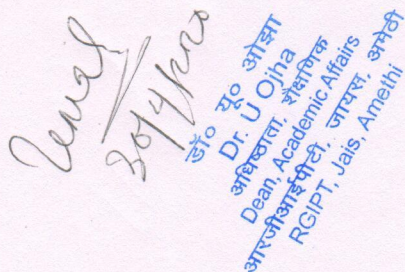 30/4/2020
डॉ० यू० ओझा
Dr. U Ojha
अधिष्ठाता, शैक्षणिक
Dean, Academic Affairs
आरजीआईपीटी, जायस, अमेठी
RGIPT, Jais, Amethi